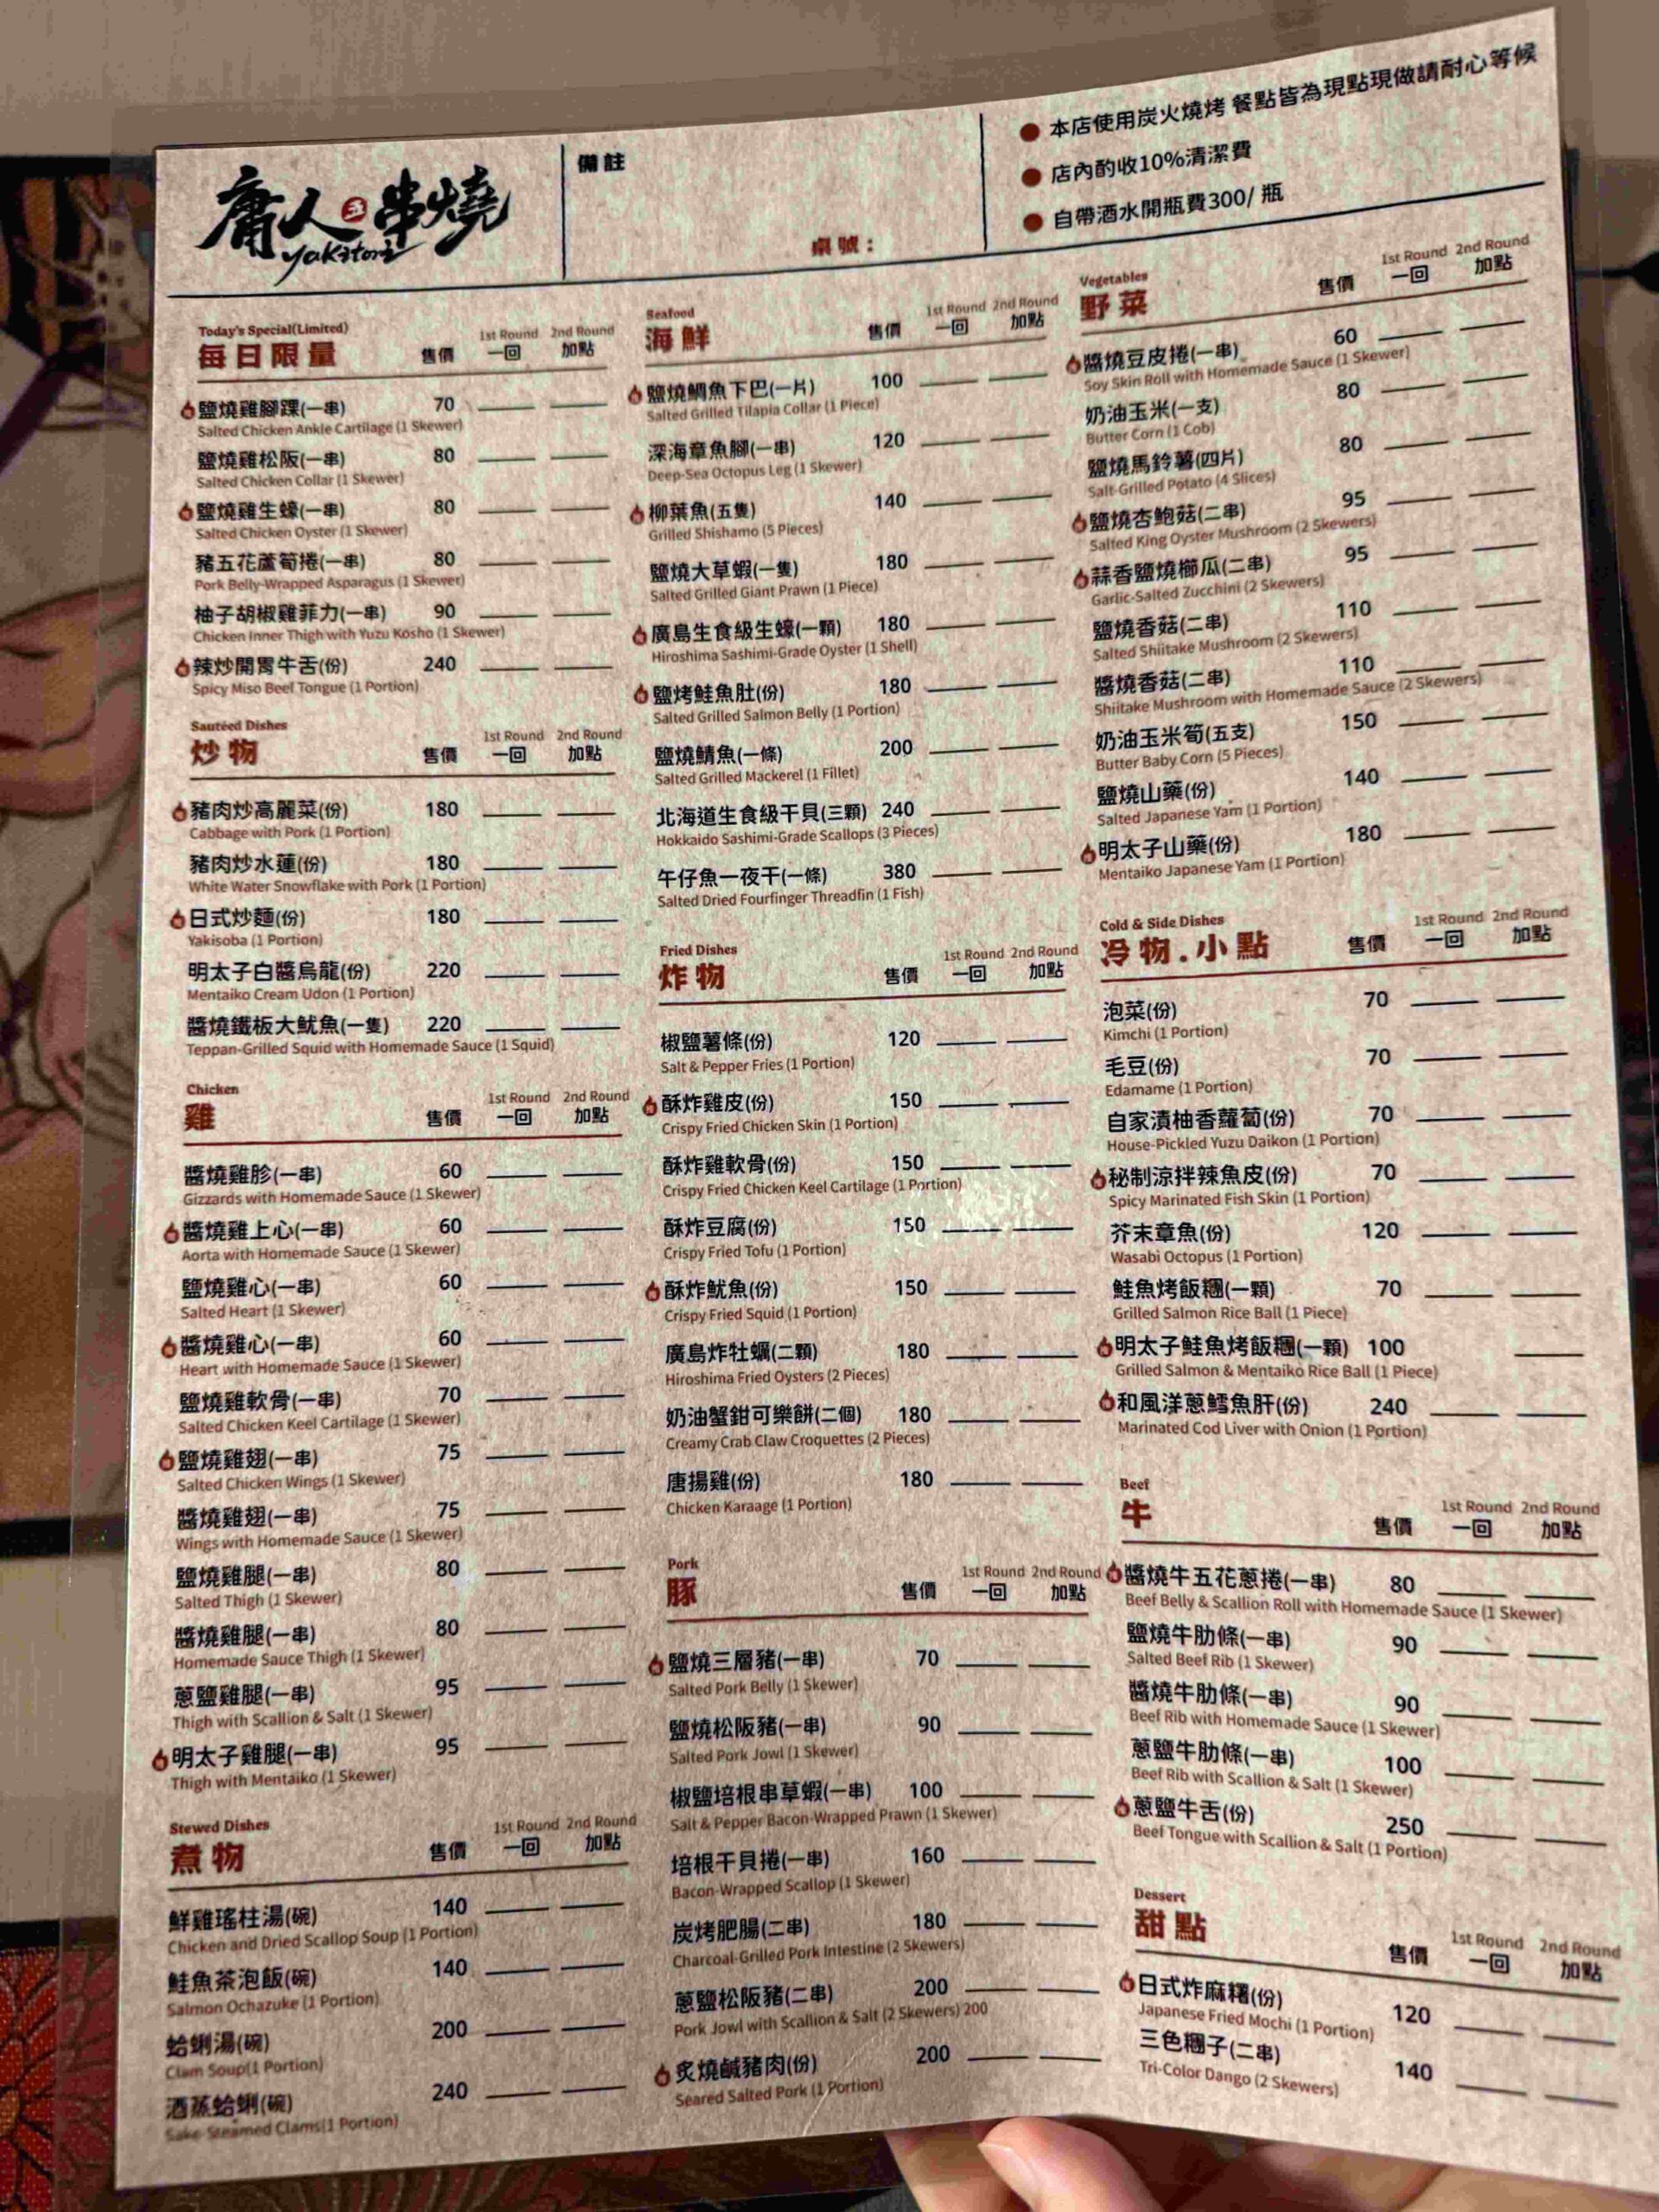 庸人五串燒
yakitori
備註
桌號：
● 本店使用炭火燒烤 餐點皆為現點現做請耐心等候
● 店內酌收10%清潔費
● 自帶酒水開瓶費300/ 瓶
Today's Special(Limited)
每日限量 售價 1st Round 一回 2nd Round 加點
鹽燒雞腳踝(一串) 70
Salted Chicken Ankle Cartilage (1 Skewer)
鹽燒雞松阪(一串) 80
Salted Chicken Collar (1 Skewer)
鹽燒雞生蠔(一串) 80
Salted Chicken Oyster (1 Skewer)
豬五花蘆筍捲(一串) 80
Pork Belly-Wrapped Asparagus (1 Skewer)
柚子胡椒雞菲力(一串) 90
Chicken Inner Thigh with Yuzu Kosho (1 Skewer)
辣炒開胃牛舌(份) 240
Spicy Miso Beef Tongue (1 Portion)
Sautéed Dishes
炒物 售價 1st Round 一回 2nd Round 加點
豬肉炒高麗菜(份) 180
Cabbage with Pork (1 Portion)
豬肉炒水蓮(份) 180
White Water Snowflake with Pork (1 Portion)
日式炒麵(份) 180
Yakisoba (1 Portion)
明太子白醬烏龍(份) 220
Mentaiko Cream Udon (1 Portion)
醬燒鐵板大魷魚(一隻) 220
Teppan-Grilled Squid with Homemade Sauce (1 Squid)
Chicken
雞 售價 1st Round 一回 2nd Round 加點
醬燒雞胗(一串) 60
Gizzards with Homemade Sauce (1 Skewer)
醬燒雞上心(一串) 60
Aorta with Homemade Sauce (1 Skewer)
鹽燒雞心(一串) 60
Salted Heart (1 Skewer)
醬燒雞心(一串) 60
Heart with Homemade Sauce (1 Skewer)
鹽燒雞軟骨(一串) 70
Salted Chicken Keel Cartilage (1 Skewer)
鹽燒雞翅(一串) 75
Salted Chicken Wings (1 Skewer)
醬燒雞翅(一串) 75
Wings with Homemade Sauce (1 Skewer)
鹽燒雞腿(一串) 80
Salted Thigh (1 Skewer)
醬燒雞腿(一串) 80
Homemade Sauce Thigh (1 Skewer)
蔥鹽雞腿(一串) 95
Thigh with Scallion & Salt (1 Skewer)
明太子雞腿(一串) 95
Thigh with Mentaiko (1 Skewer)
Stewed Dishes
煮物 售價 1st Round 一回 2nd Round 加點
鮮雞瑤柱湯(碗) 140
Chicken and Dried Scallop Soup (1 Portion)
鮭魚茶泡飯(碗) 140
Salmon Ochazuke (1 Portion)
蛤蜊湯(碗) 200
Clam Soup(1 Portion)
酒蒸蛤蜊(碗) 240
Sake-Steamed Clams(1 Portion)
Seafood
海鮮 售價 1st Round 一回 2nd Round 加點
鹽燒鯛魚下巴(一片) 100
Salted Grilled Tilapia Collar (1 Piece)
深海章魚腳(一串) 120
Deep-Sea Octopus Leg (1 Skewer)
柳葉魚(五隻) 140
Grilled Shishamo (5 Pieces)
鹽燒大草蝦(一隻) 180
Salted Grilled Giant Prawn (1 Piece)
廣島生食級生蠔(一顆) 180
Hiroshima Sashimi-Grade Oyster (1 Shell)
鹽烤鮭魚肚(份) 180
Salted Grilled Salmon Belly (1 Portion)
鹽燒鯖魚(一條) 200
Salted Grilled Mackerel (1 Fillet)
北海道生食級干貝(三顆) 240
Hokkaido Sashimi-Grade Scallops (3 Pieces)
午仔魚一夜干(一條) 380
Salted Dried Fourfinger Threadfin (1 Fish)
Fried Dishes
炸物 售價 1st Round 一回 2nd Round 加點
椒鹽薯條(份) 120
Salt & Pepper Fries (1 Portion)
酥炸雞皮(份) 150
Crispy Fried Chicken Skin (1 Portion)
酥炸雞軟骨(份) 150
Crispy Fried Chicken Keel Cartilage (1 Portion)
酥炸豆腐(份) 150
Crispy Fried Tofu (1 Portion)
酥炸魷魚(份) 150
Crispy Fried Squid (1 Portion)
廣島炸牡蠣(二顆) 180
Hiroshima Fried Oysters (2 Pieces)
奶油蟹鉗可樂餅(二個) 180
Creamy Crab Claw Croquettes (2 Pieces)
唐揚雞(份) 180
Chicken Karaage (1 Portion)
Pork
豚 售價 1st Round 一回 2nd Round 加點
鹽燒三層豬(一串) 70
Salted Pork Belly (1 Skewer)
鹽燒松阪豬(一串) 90
Salted Pork Jowl (1 Skewer)
椒鹽培根串草蝦(一串) 100
Salt & Pepper Bacon-Wrapped Prawn (1 Skewer)
培根干貝捲(一串) 160
Bacon-Wrapped Scallop (1 Skewer)
炭烤肥腸(二串) 180
Charcoal-Grilled Pork Intestine (2 Skewers)
蔥鹽松阪豬(二串) 200
Pork Jowl with Scallion & Salt (2 Skewers) 200
炙燒鹹豬肉(份) 200
Seared Salted Pork (1 Portion)
Vegetables
野菜 售價 1st Round 一回 2nd Round 加點
醬燒豆皮捲(一串) 60
Soy Skin Roll with Homemade Sauce (1 Skewer)
奶油玉米(一支) 80
Butter Corn (1 Cob)
鹽燒馬鈴薯(四片) 80
Salt-Grilled Potato (4 Slices)
鹽燒杏鮑菇(二串) 95
Salted King Oyster Mushroom (2 Skewers)
蒜香鹽燒櫛瓜(二串) 95
Garlic-Salted Zucchini (2 Skewers)
鹽燒香菇(二串) 110
Salted Shiitake Mushroom (2 Skewers)
醬燒香菇(二串) 110
Shiitake Mushroom with Homemade Sauce (2 Skewers)
奶油玉米筍(五支) 150
Butter Baby Corn (5 Pieces)
鹽燒山藥(份) 140
Salted Japanese Yam (1 Portion)
明太子山藥(份) 180
Mentaiko Japanese Yam (1 Portion)
Cold & Side Dishes
冷物.小點 售價 1st Round 一回 2nd Round 加點
泡菜(份) 70
Kimchi (1 Portion)
毛豆(份) 70
Edamame (1 Portion)
自家漬柚香蘿蔔(份) 70
House-Pickled Yuzu Daikon (1 Portion)
秘制涼拌辣魚皮(份) 70
Spicy Marinated Fish Skin (1 Portion)
芥末章魚(份) 120
Wasabi Octopus (1 Portion)
鮭魚烤飯糰(一顆) 70
Grilled Salmon Rice Ball (1 Piece)
明太子鮭魚烤飯糰(一顆) 100
Grilled Salmon & Mentaiko Rice Ball (1 Piece)
和風洋蔥鱈魚肝(份) 240
Marinated Cod Liver with Onion (1 Portion)
Beef
牛 售價 1st Round 一回 2nd Round 加點
醬燒牛五花蔥捲(一串) 80
Beef Belly & Scallion Roll with Homemade Sauce (1 Skewer)
鹽燒牛肋條(一串) 90
Salted Beef Rib (1 Skewer)
醬燒牛肋條(一串) 90
Beef Rib with Homemade Sauce (1 Skewer)
蔥鹽牛肋條(一串) 100
Beef Rib with Scallion & Salt (1 Skewer)
蔥鹽牛舌(份) 250
Beef Tongue with Scallion & Salt (1 Portion)
Dessert
甜點 售價 1st Round 一回 2nd Round 加點
日式炸麻糬(份) 120
Japanese Fried Mochi (1 Portion)
三色糰子(二串) 140
Tri-Color Dango (2 Skewers)